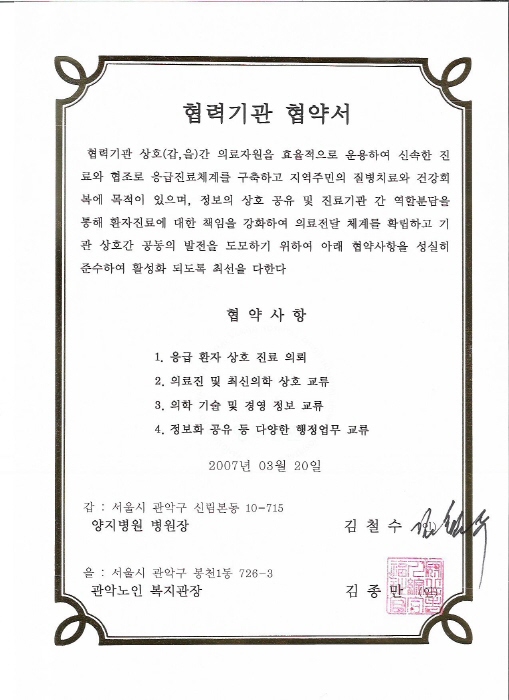 협력기관 협약서
협력기관 상호(갑,을)간 의료자원을 효율적으로 운용하여 신속한 진
료와 협조로 응급진료체계를 구축하고 지역주민의 질병치료와 건강회
복에 목적이 있으며, 정보의 상호 공유 및 진료기관 간 역할분담을
통해 환자진료에 대한 책임을 강화하여 의료전달 체계를 확립하고 기
관 상호간 공동의 발전을 도모하기 위하여 아래 협약사항을 성실히
준수하여 활성화 되도록 최선을 다한다
협 약 사 항
1. 응급 환자 상호 진료 의뢰
2. 의료진 및 최신의학 상호 교류
3. 의학 기술 및 경영 정보 교류
4. 정보화 공유 등 다양한 행정업무 교류
2007년 03월 20일
갑 : 서울시 관악구 신림본동 10-715
양지병원 병원장 김 철 수 (인)
을 : 서울시 관악구 봉천1동 726-3
관악노인 복지관장 김 종 만 (인)